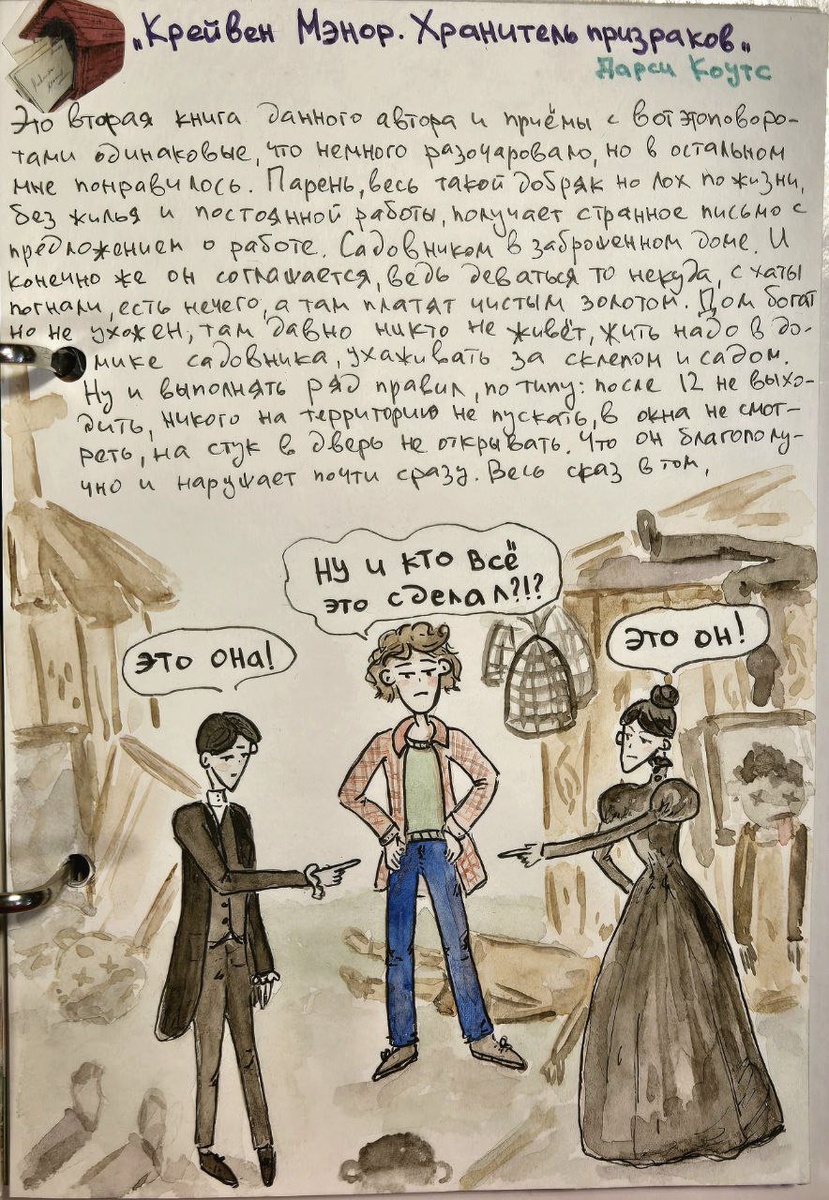 „Крейвен Мэнор. Хранитель призраков„
Дарси Коутс
Это вторая книга данного автора и приёмы с вотэтоповоро-
тами одинаковые, что немного разочаровало, но в остальном
мне понравилось. Парень, весь такой добряк но лох по жизни,
без жилья и постоянной работы, получает странное письмо с
предложением о работе. Садовником в заброшенном доме. И
конечно же он соглашается, ведь деваться то некуда, с хаты
погнали, есть нечего, а там платят чистым золотом. Дом богат
но не ухожен, там давно никто не живёт, жить надо в до-
мике садовника, ухаживать за склепом и садом.
Ну и выполнять ряд правил, по типу: после 12 не выхо-
дить, никого на территорию не пускать, в окна не смот-
реть, на стук в дверь не открывать. Что он благополу-
чно и нарушает почти сразу. Весь сказ в том,
Ну и кто всё
это сделал?!?
Это она!
Это он!